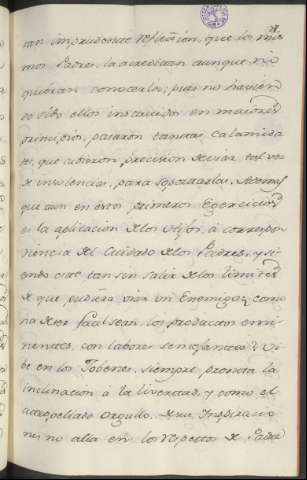 tan imprudente reflexion, que los mis
mos Padres, la acreditan aunque no
quieran conocerla; pues no havien
do sido ellos instruidos en mejores
principios, pasaron tantas calamida
des, que tubieron precision de usar tal vez
de insolencias, para separarlas. Ademas
que aun en estos primeros Egercicios
es la aplicacion de los Hijos, á correspon
diencia del Cuidado de los Padres, y si
endo este tan sin salir de los limites
de que pudiera vivir un Enemigo; como
ha de ser facil sean los productos
con labores semejantes? Vi
be en los Jobenes, siempre pronta la
inclinacion á la livertad, y como el
atropellado Orgullo, de su Inspiracio
nes no atia en los respetos de Padre